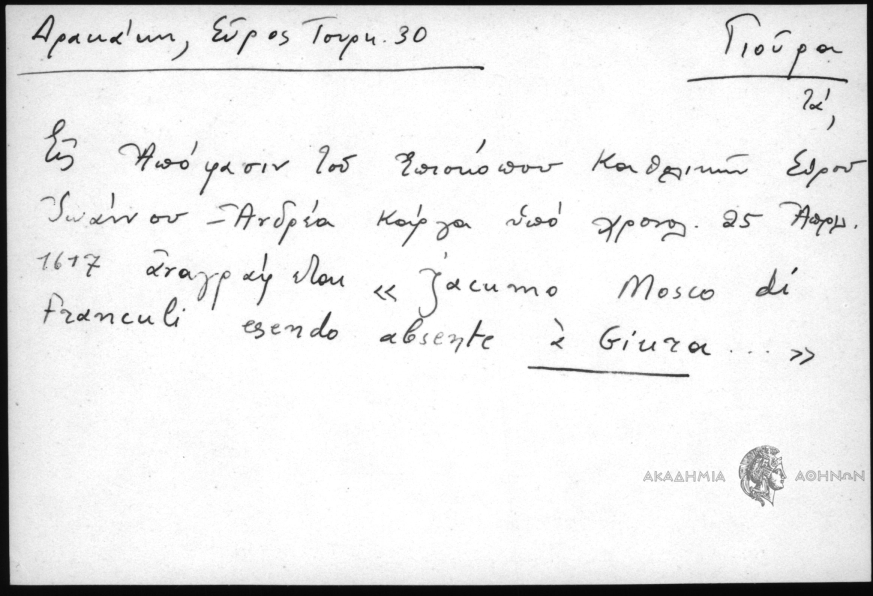 Δρακάκη, Σῦρος Τουρκ. 30
Γιοῦρα
τά,
Εἰς Ἀπόφασιν τοῦ Ἐπισκόπου Καθολικῶν Σύρου
Ἰωάννου - Ἀνδρέα Κάργα ὑπό χρονολ. 25 Ἀπρ.
1617 ἀναγράφεται « Jacumo Mosco di
Franculi esendo absente à Giura ... »
ΑΚΑΔΗΜΙΑ ΑΘΗΝΩΝ